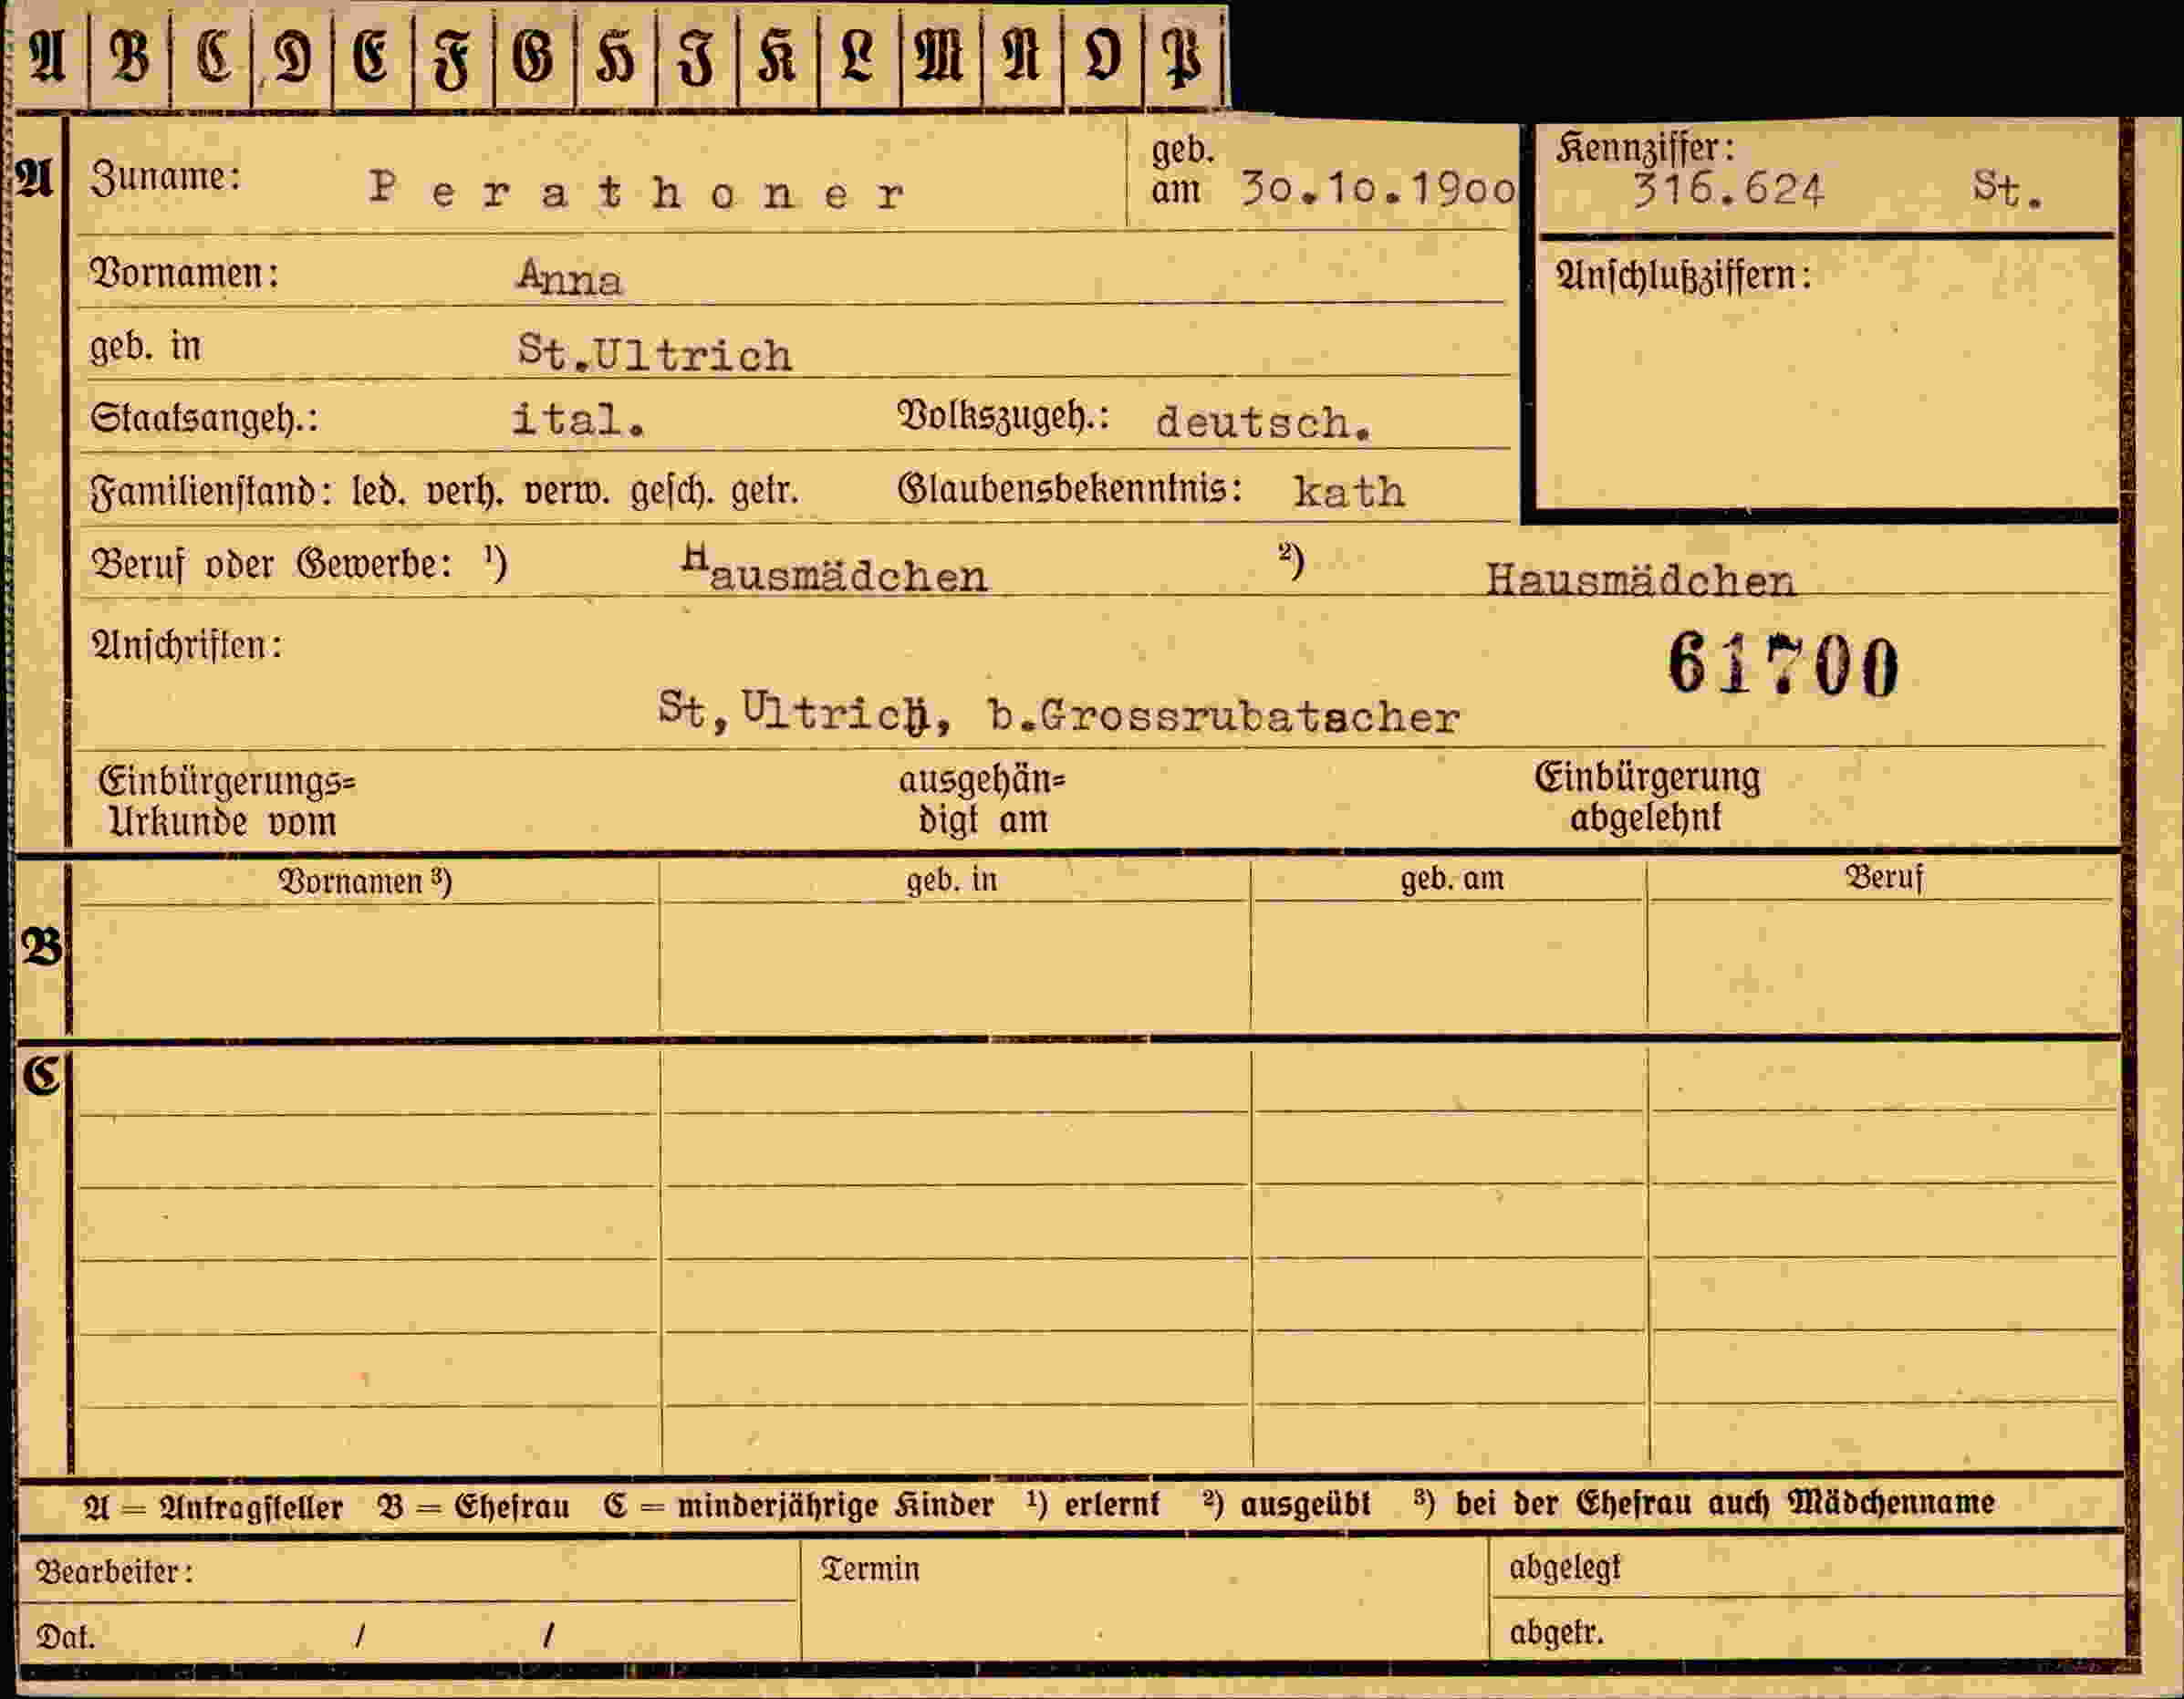 A B C D E F G H I K L M N O P
A Zuname: Perathoner geb. am 30.10.1900 Kennziffer: 316.624 St.
Vornamen: Anna Anschlußziffern:
geb. in St.Ultrich
Staatsangeh.: ital. Volkszugeh.: deutsch.
Familienstand: led. verh. verw. gesch. getr. Glaubensbekenntnis: kath
Beruf oder Gewerbe: ¹) Hausmädchen ²) Hausmädchen
Anschriften: 61700
St,Ultrich, b.Grossrubatscher
Einbürgerungs= ausgehän= Einbürgerung
Urkunde vom digt am abgelehnt
Vornamen ³) geb. in geb. am Beruf
B
C
A = Antragsteller B = Ehefrau C = minderjährige Kinder ¹) erlernt ²) ausgeübt ³) bei der Ehefrau auch Mädchenname
Bearbeiter: Termin abgelegt
Dat. / / abgetr.